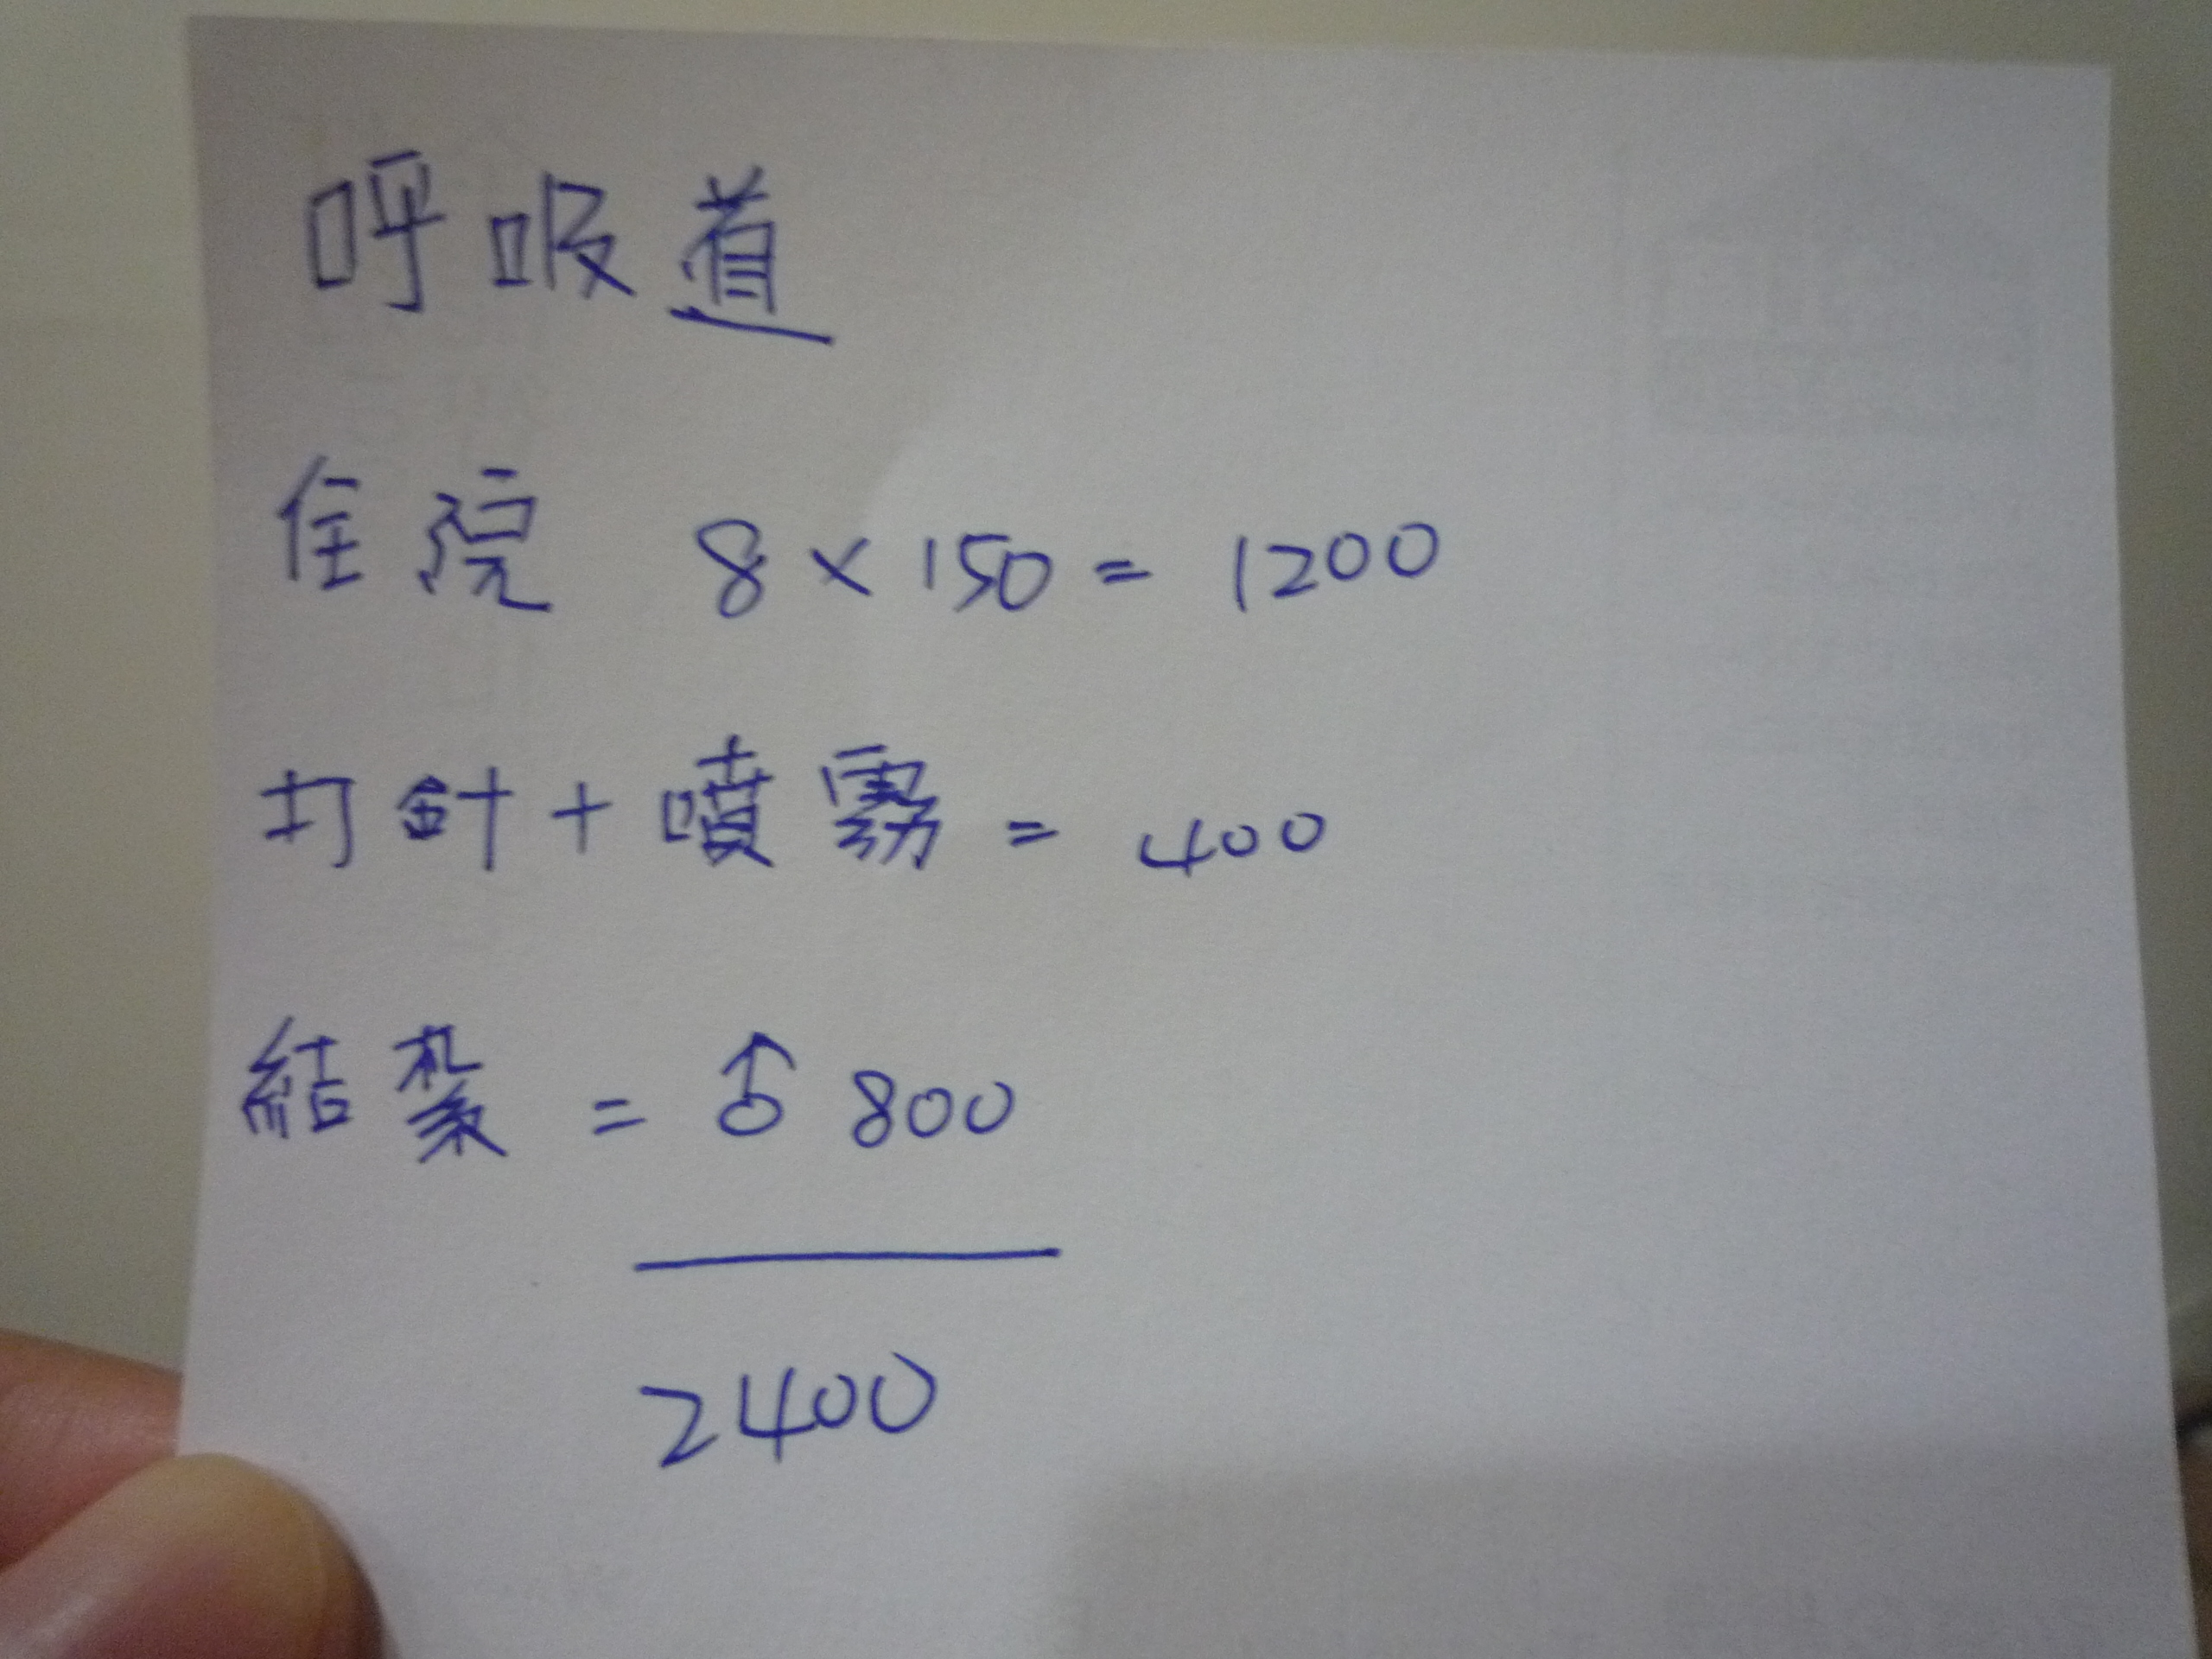 呼吸道
住院 8 × 150 = 1200
打針 + 噴霧 = 400
結紮 = ♂ 800
2400